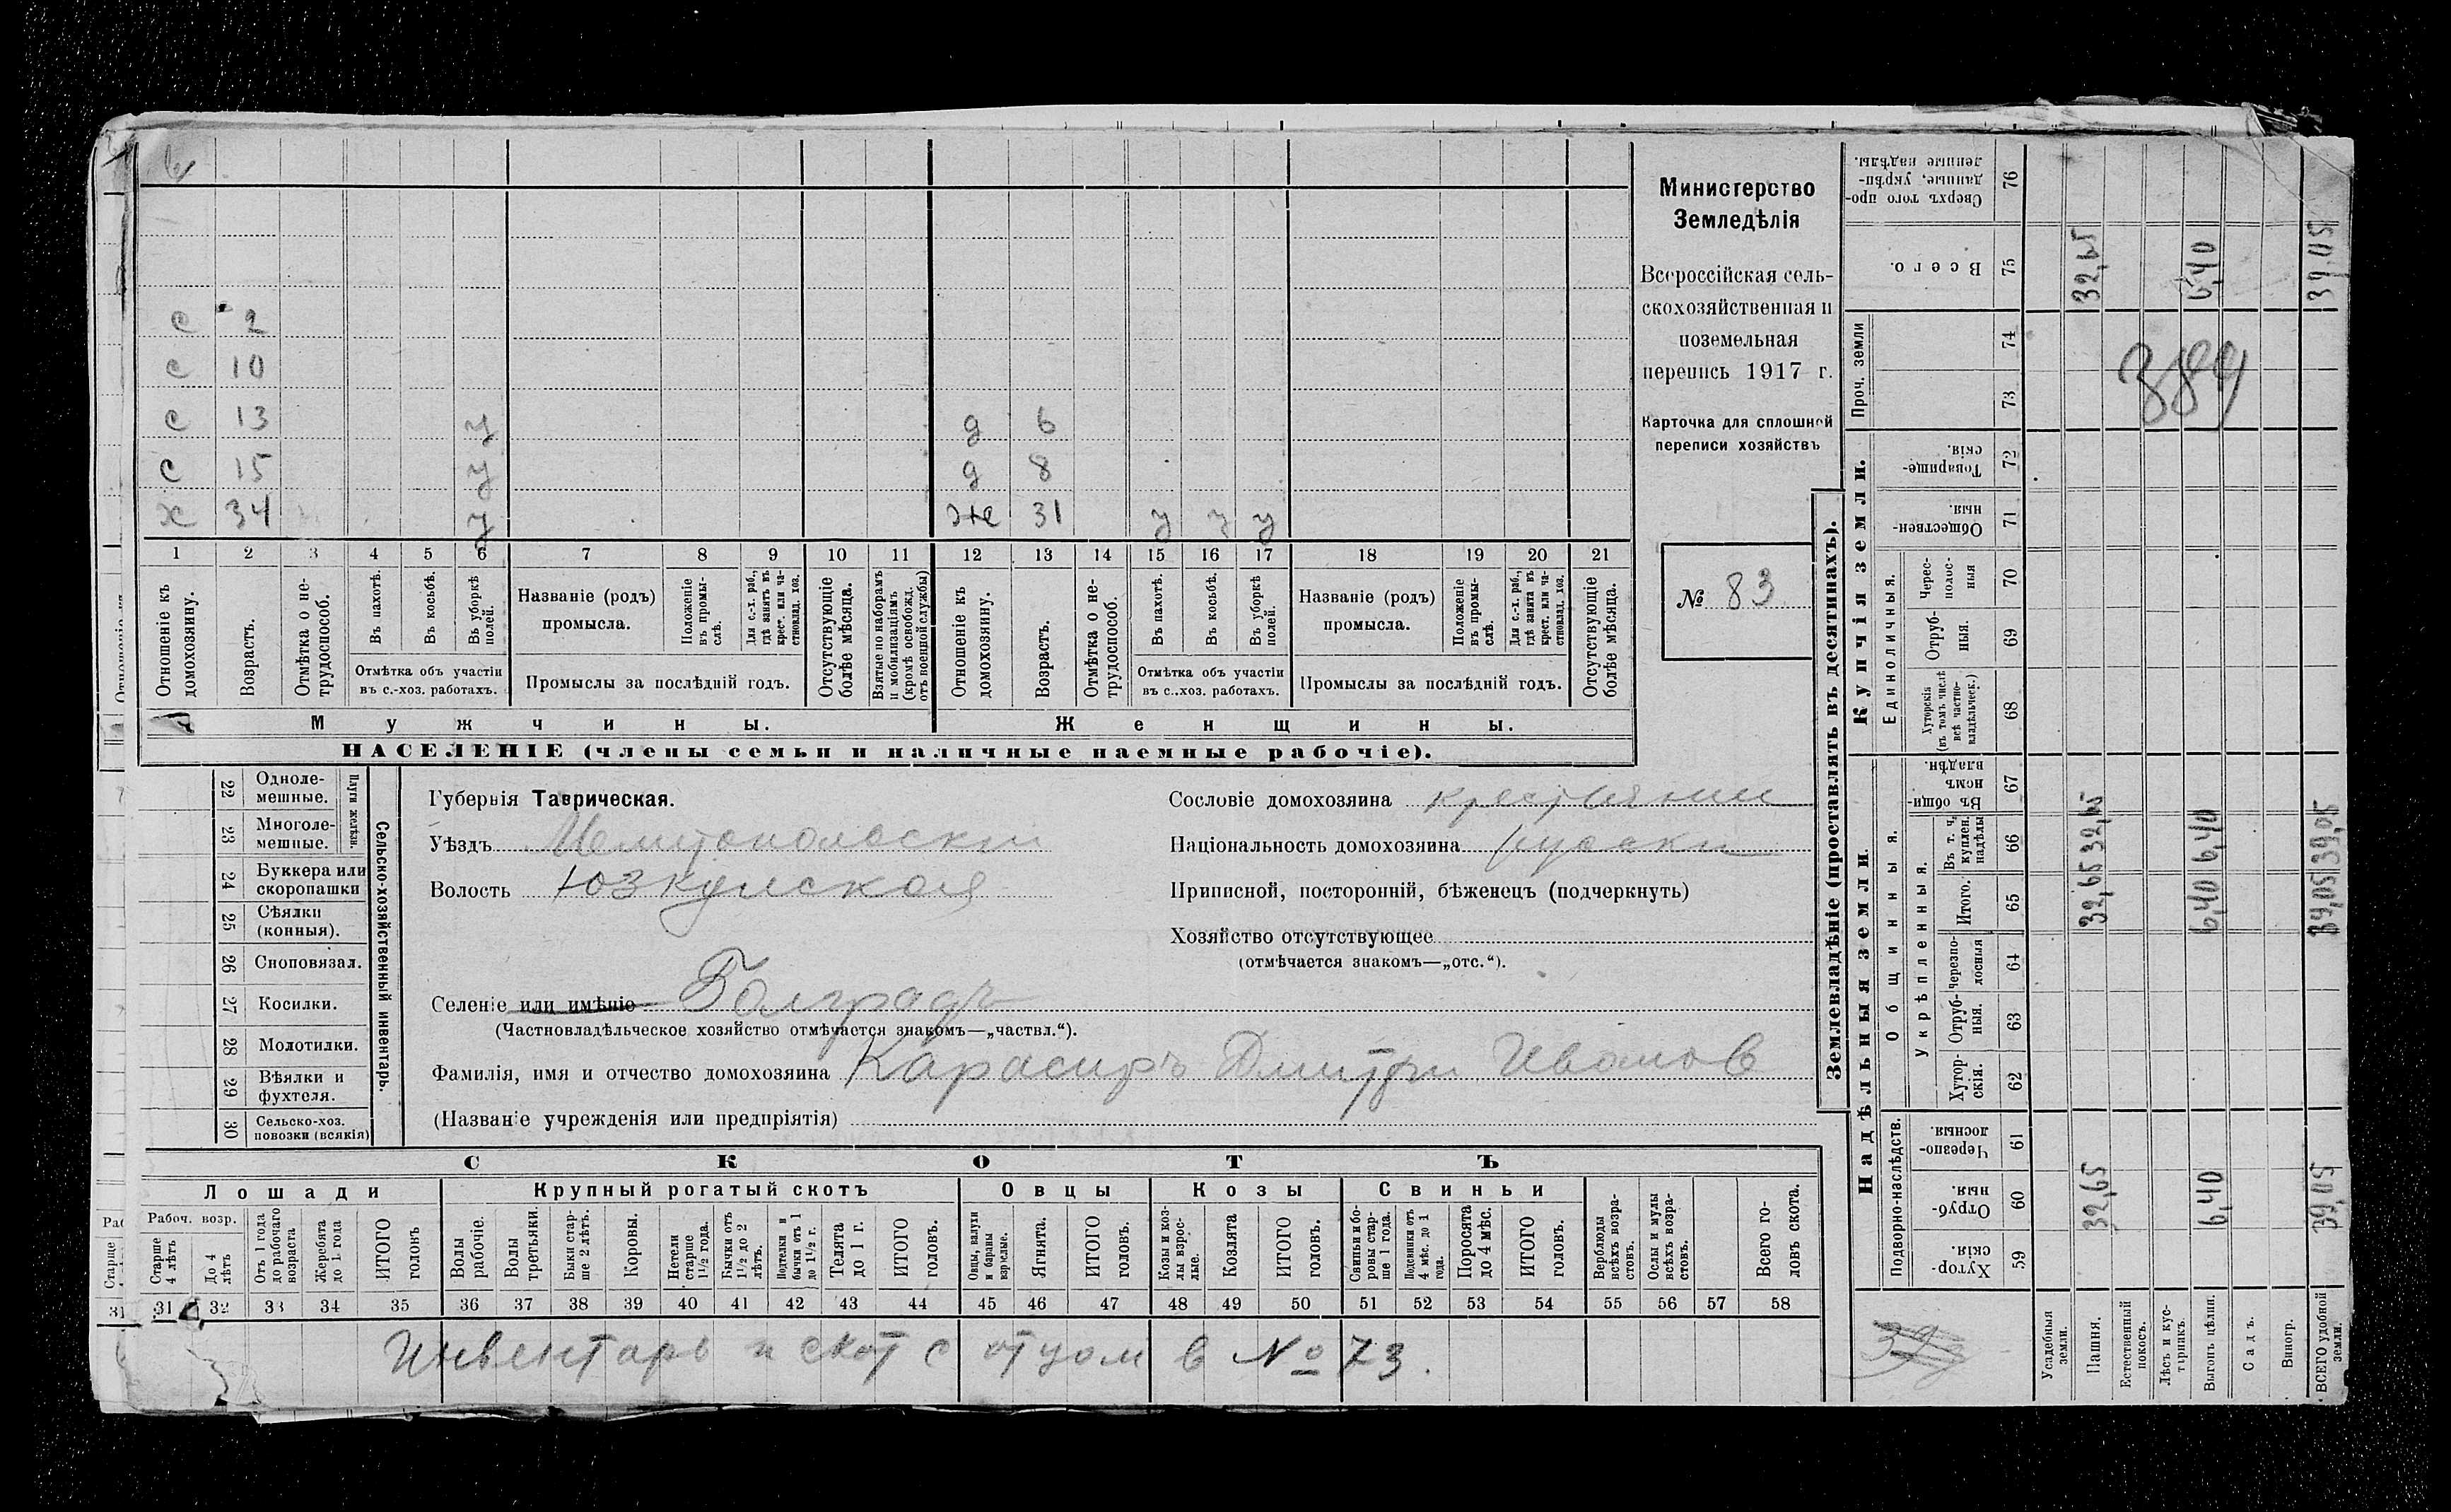 с 2
с 10
с 13 у д 6
с 15 у д 8
х 34 у Же 31 у у у
1 2 3 4 5 6 7 8 9 10 11 12 13 14 15 16 17 18 19 20 21
Отношеніе къ домохозяину.
Возрастъ.
Отмѣтка о не-трудоспособ.
Въ пахотѣ.
Въ косьбѣ.
Въ уборкѣ полей.
Отмѣтка объ участіи
въ с.-хоз. работахъ.
Названіе (родъ)
промысла.
Положеніе въ промы-слѣ.
Для с.-х. раб., гдѣ занятъ въ крест. или ча-стновлад. хоз.
Промыслы за послѣдній годъ.
Отсутствующіе болѣе мѣсяца.
Взятые по наборамъ и мобилизаціямъ (кромѣ освобожд. отъ военной службы)
Отношеніе къ домохозяину.
Возрастъ.
Отмѣтка о не-трудоспособ.
Въ пахотѣ.
Въ косьбѣ.
Въ уборкѣ полей.
Отмѣтка объ участіи
въ с.-хоз. работахъ.
Названіе (родъ)
промысла.
Положеніе въ промы-слѣ.
Для с.-х. раб., гдѣ занята въ крест. или ча-стновлад. хоз.
Промыслы за послѣдній годъ.
Отсутствующіе болѣе мѣсяца.
Мужчины. Женщины.
НАСЕЛЕНІЕ (члены семьи и наличные наемные рабочіе).
Министерство
Земледѣлія
Всероссійская сель-
скохозяйственная и
поземельная
перепись 1917 г.
Карточка для сплошной
переписи хозяйствъ
№ 83
Сельско-хозяйственный инвентарь.
Плуги желѣзн.
22 Одноле-мешные.
23 Многоле-мешные.
24 Буккера или скоропашки
25 Сѣялки (конныя).
26 Сноповязал.
27 Косилки.
28 Молотилки.
29 Вѣялки и фухтеля.
30 Сельско-хоз. повозки (всякія)
Губернія Таврическая.
Уѣздъ Мелитопольскій
Волость Юзкуйская
Селеніе или имѣніе Болградъ
(Частновладѣльческое хозяйство отмѣчается знакомъ—„частвл.“).
Фамилія, имя и отчество домохозяина Карасиръ Дмитри Иванов
(Названіе учрежденія или предпріятія)
Сословіе домохозяина крестьянин
Національность домохозяина русски
Приписной, посторонній, бѣженецъ (подчеркнуть)
Хозяйство отсутствующее
(отмѣчается знакомъ—„отс.“).
СКОТЪ
Лошади Крупный рогатый скотъ Овцы Козы Свиньи
Рабоч. возр.
Старше 4 лѣтъ
До 4 лѣтъ
Отъ 1 года до рабочаго возраста
Жеребята до 1 года
ИТОГО головъ
Волы рабочіе.
Волы третьяки.
Быки стар-ше 2 лѣтъ.
Коровы.
Нетели старше 1½ года.
Бычки отъ 1½ до 2 лѣтъ.
Подтелки и бычки отъ 1 до 1½ г.
Телята до 1 г.
ИТОГО головъ.
Овцы, валухи и бараны взрослые.
Ягнята.
ИТОГО головъ.
Козы и коз-лы взрос-лые.
Козлята
ИТОГО головъ.
Свиньи и бо-ровы стар-ше 1 года.
Подсвинки отъ 4 мѣс. до 1 года.
Поросята до 4 мѣс.
ИТОГО головъ.
Верблюды всѣхъ возра-стовъ.
Ослы и мулы всѣхъ возра-стовъ.
Всего го-ловъ скота.
31 32 33 34 35 36 37 38 39 40 41 42 43 44 45 46 47 48 49 50 51 52 53 54 55 56 57 58
Инвентарь и скот с отцом в № 73.
Землевладѣніе (проставлять въ десятинахъ).
Надѣльныя земли
Купчія земли.
Проч. земли
Подворно-наслѣдств.
Общинныя.
Укрѣпленныя.
Единоличныя.
Сверхъ того про-данные, укрѣп-ленные надѣлы. 76
Всего. 75 32,65 6,40 39,05
74
73
389
Товарище-скія. 72
Обществен-ныя. 71
Черес-полос-ныя 70
Отруб-ныя. 69
Хуторскія (въ томъ числѣ всѣ частно-владѣльческ.) 68
Въ общи-номъ владѣн. 67
Въ т. ч. куплен. надѣлы 66 32,65 6,40 39,05
Итого. 65 32,65 6,40 39,05
Черезпо-лосныя 64
Отруб-ныя. 63
Хутор-скія. 62
Черезпо-лосныя. 61
Отруб-ныя. 60 32,65 6,40 39,05
Хутор-скія. 59
Усадебныя земли.
Пашня.
Естественный покосъ.
Лѣсъ и кус-тарникъ.
Выгонъ цѣлин.
Садъ.
Виногр.
ВСЕГО удобной земли.